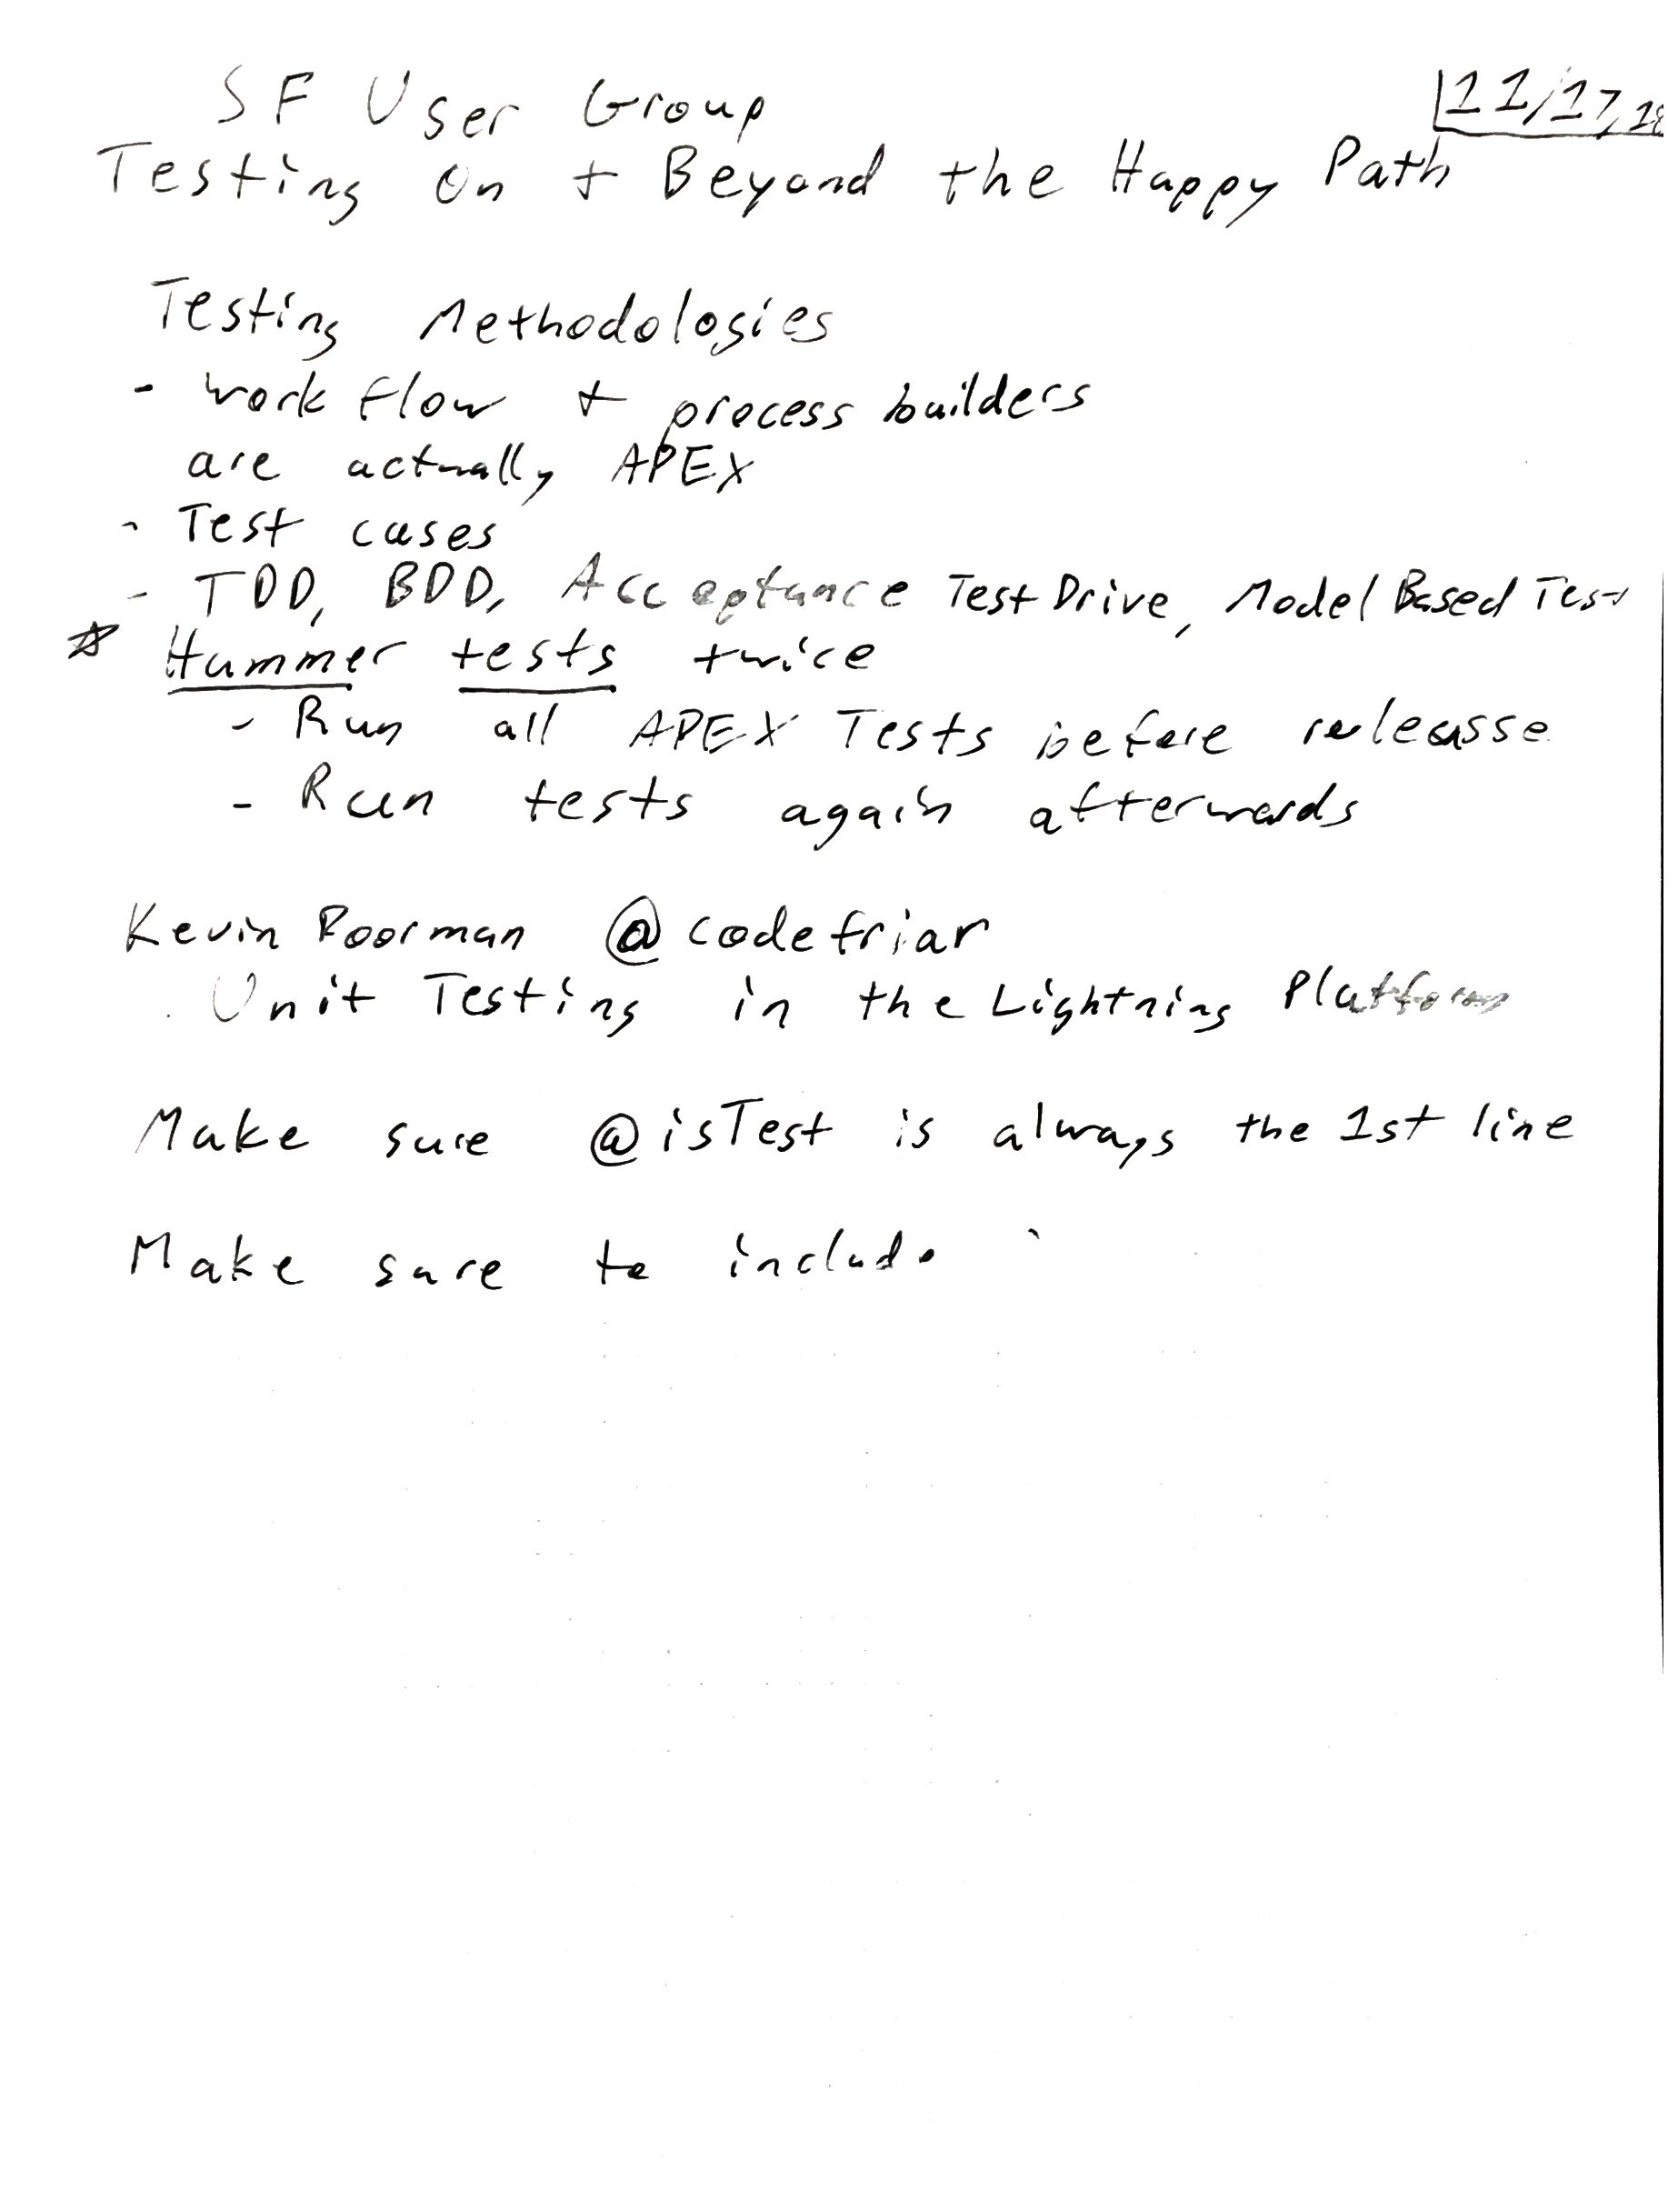 SF User Group
11/17/18
Testing On + Beyond the Happy Path
Testing Methodologies
- work flow + process builders
are actually APEX
- Test cases
- TDD, BDD, Acceptance Test Drive, Model Based Test
☆ Hammer tests twice
- Run all APEX Tests before releasse
- Run tests again afterwards
Kevin Poorman @codefriar
Unit Testing in the Lightning Platform
Make sure @isTest is always the 1st line
Make sure to include